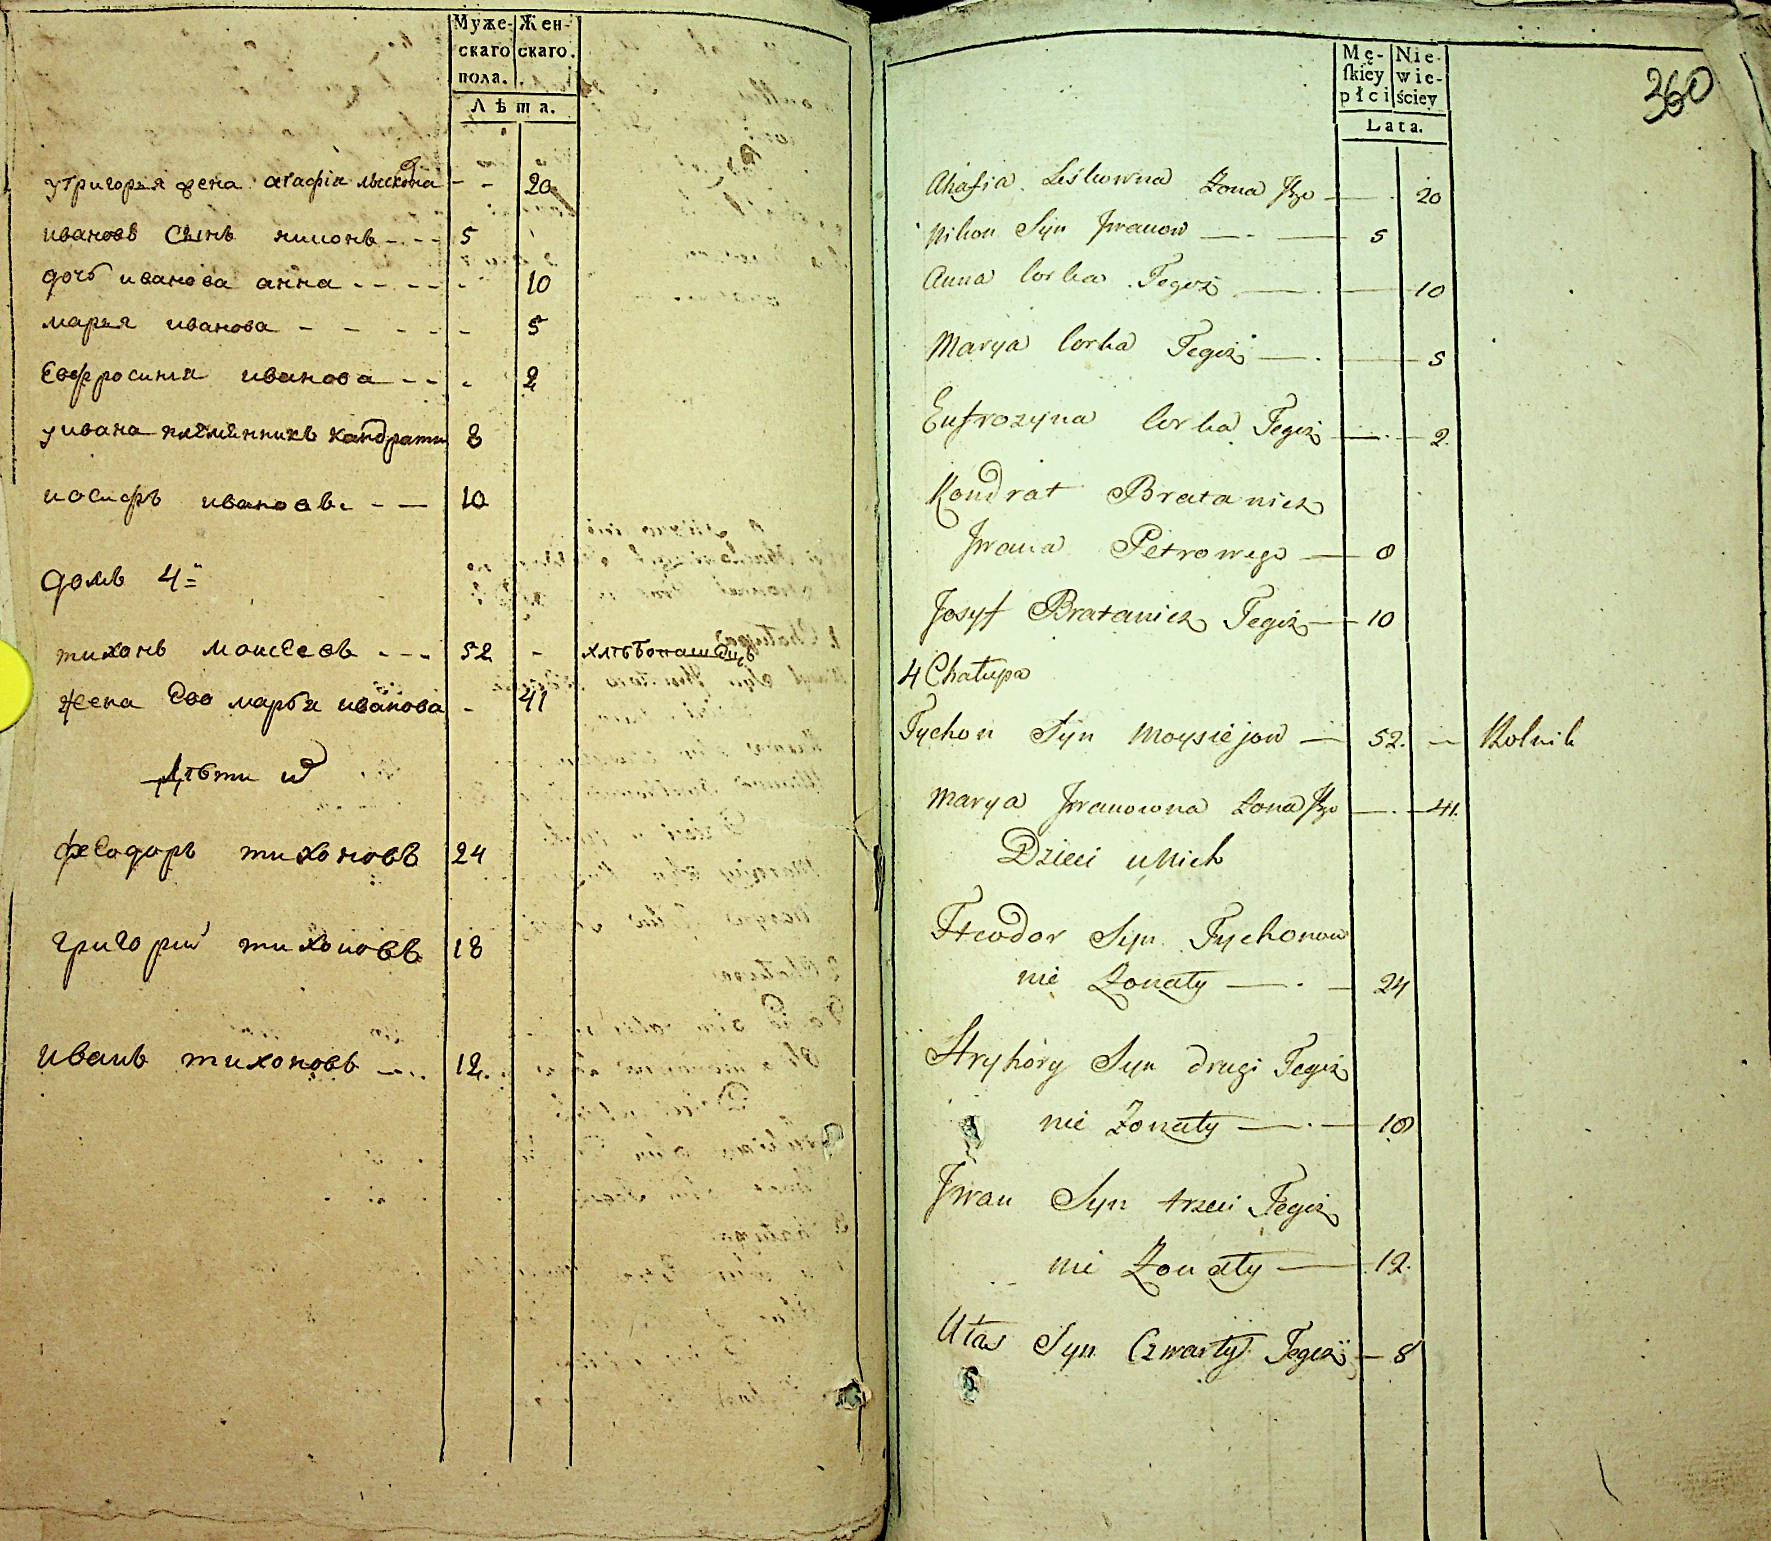 Муже-
скаго
пола.
Жен-
скаго.
Лѣта.
у григорья жена агафія лескова - - 20
ивановъ сынъ никонъ - - - 5
дочь иванова анна - - - - - 10
марья иванова - - - - - 5
Евфросиния иванова - - - 2
у ивана племянникъ кандрати 8
иосифъ ивановъ - - 10
домъ 4й
тихонъ моисеевъ - - - 52 - хлѣбопашецъ
жена Его марья иванова - 41
дѣти их
феодоръ тихоновъ 24
григорий тихоновъ 18
иванъ тихоновъ - - - 12.
360
Mę-
skiey
płci
Nie-
wie-
ściey
Lata.
Ahafia Leśkowna Żona Jego — 20
Nikon Syn Jwanow — 5
Anna Corka Tegoż — 10
Marya Corka Tegoż — 5
Eufrozyna Corka Tegoż — 2.
Kondrat Bratanicz
Jwana Petrowego — 8
Josyf Bratanicz Tegoż — 10
4 Chałupa
Tychon Syn Moysiejow — 52. — Rolnik
Marya Jwanowna Żona Jego — 41.
Dzieci u Nich
Fteodor Syn Tychonow
nie Żonaty — 24
Hryhory Syn drugi Tegoż
nie Żonaty — 18
Jwan Syn trzeci Tegoż
nie Żonaty — 12.
Ułas Syn Czwarty Tegoż — 8